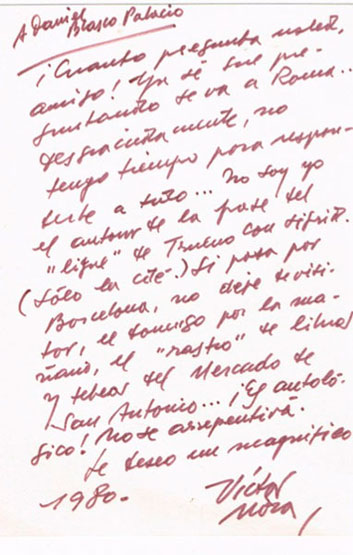 A Daniel
Blasco Palacio
¡Cuanto pregunta usted,
amigo! Ya sé que pre-
guntando se va a Roma...
Desgraciadamente, no
tengo tiempo para respon-
derle a todo... no soy yo
el autor de la frase del
"ligre" de Trueno con Sigrid.
(Sólo la cité.) Si pasa por
Barcelona, no deje de visi-
tar, el domingo por la ma-
ñana, el "rastro" de libros
y tebeos del Mercado de
San Antonio... ¡Es antoló-
gico! No se arrepentirá.
Le deseo un magnífico
1980.
Víctor
Mora